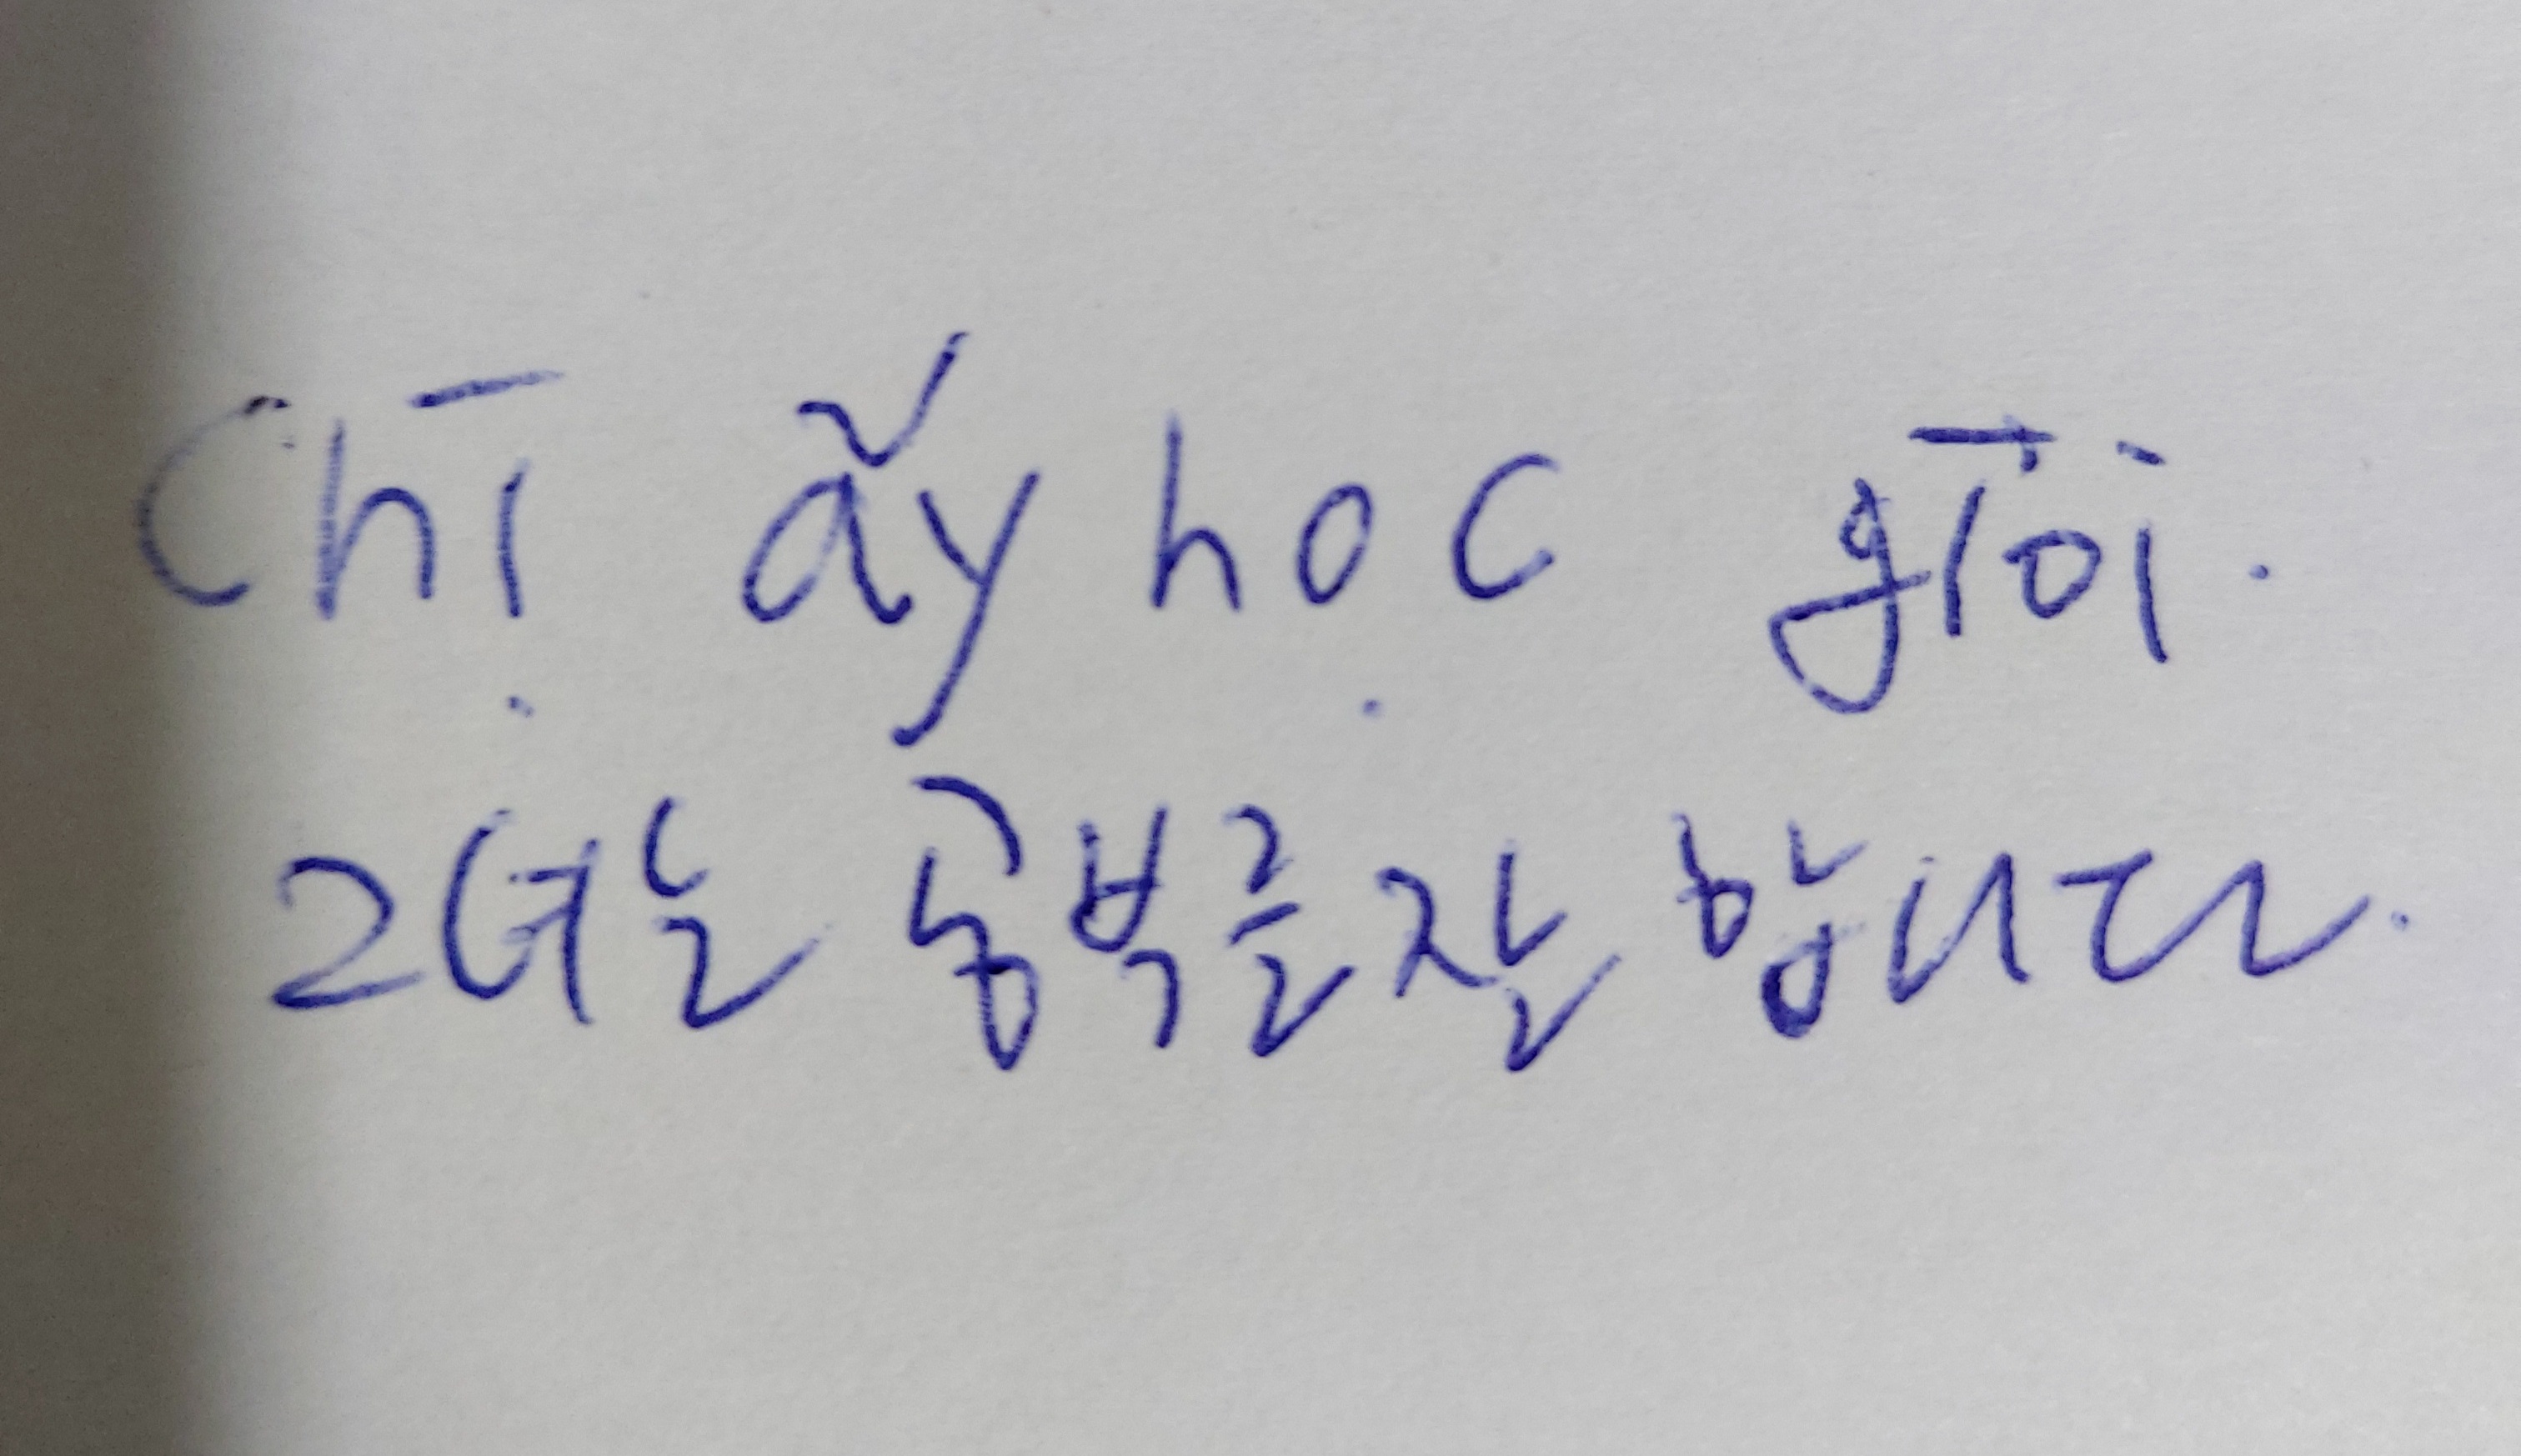 Chị ấy học giỏi.
그녀는 공부를 잘 합니다.